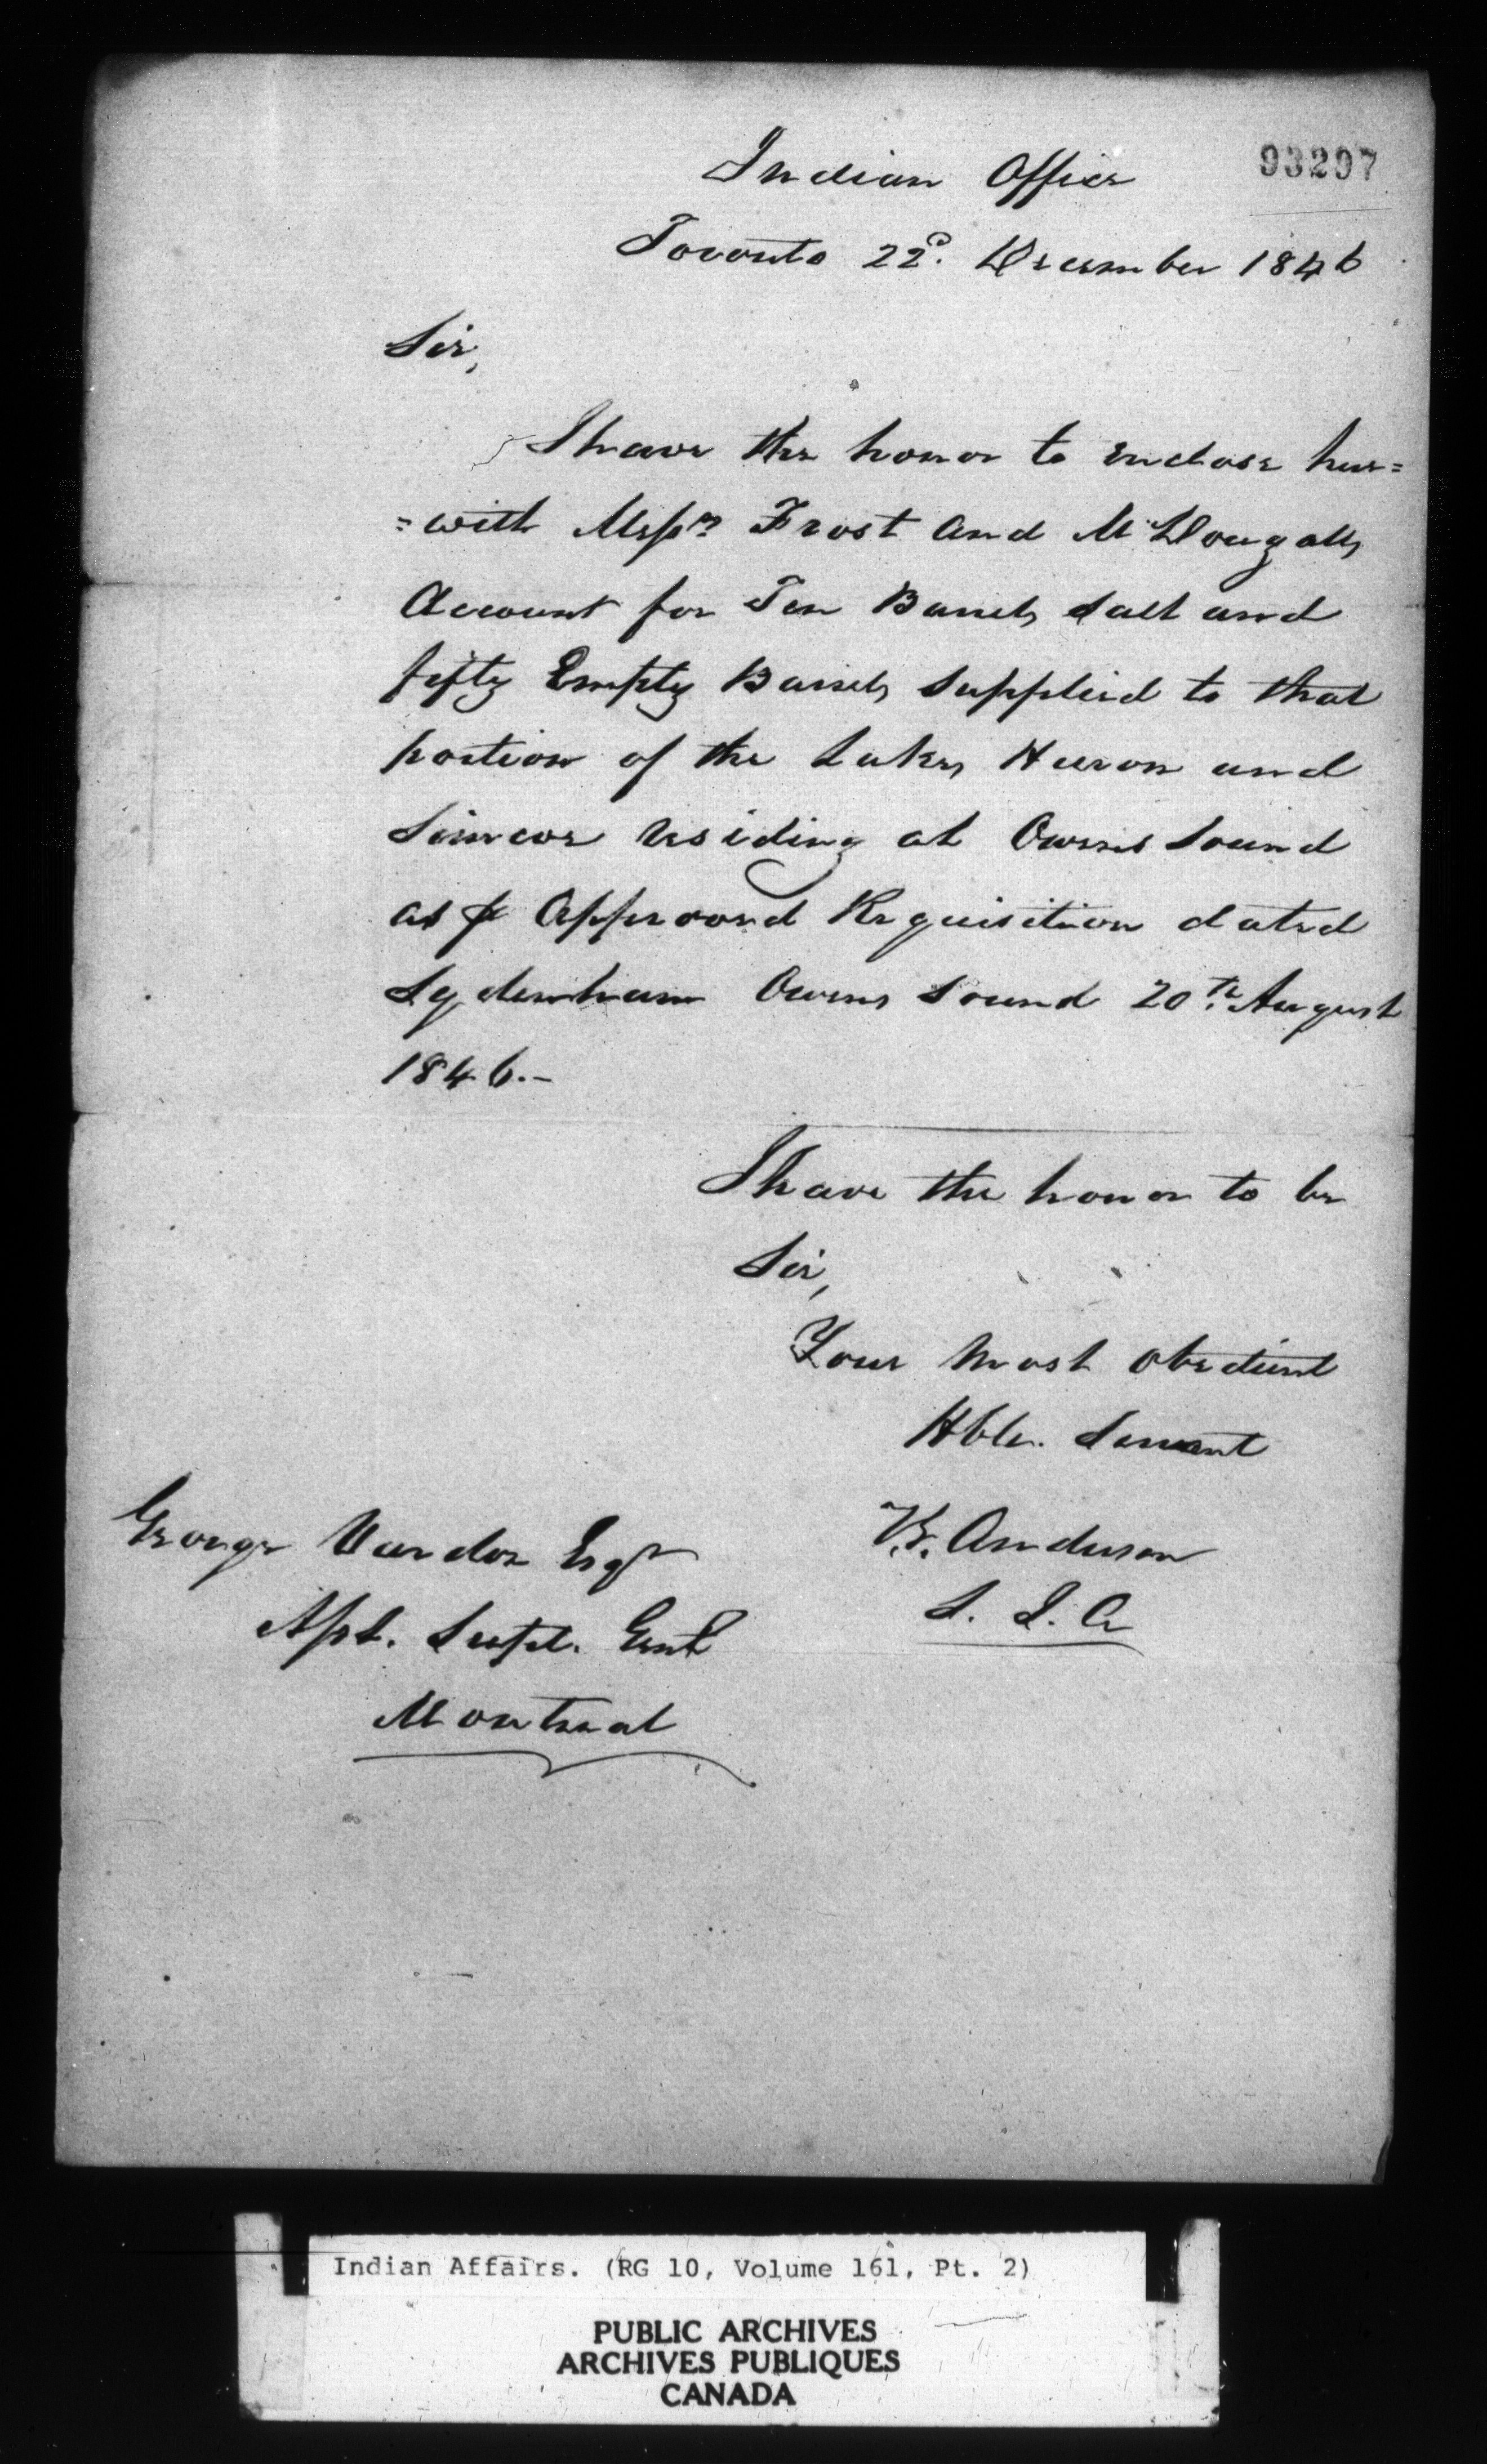 93297
Indian Office
Toronto 22d. December 1846
Sir,
I have the honor to enclose here=
=with Messrs. Frost and McDougalls
Account for Ten Barrels Salt and
fifty Empty Barrels supplied to that
portion of the Lakes Huron and
Simcoe residing at Owens Sound
as pr Approved Requisition dated
Sydenham Owens Sound 20th. August
1846.-
I have the honor to be
Sir,
Your most obedient
Hble. Servant
T.G. Anderson
S. I. A
George Vardon Esqr
Asst. Supt. Genl
Montreal
Indian Affairs. (RG 10, Volume 161, Pt. 2)
PUBLIC ARCHIVES
ARCHIVES PUBLIQUES
CANADA